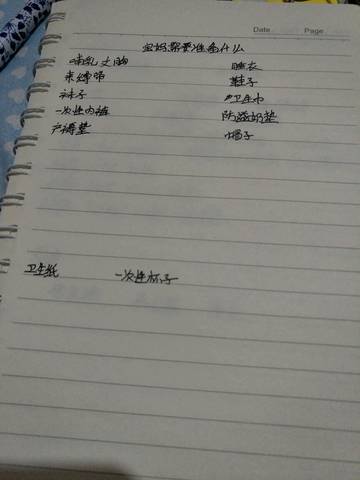 Date Page
宝妈需要准备什么
哺乳文胸 睡衣
束缚带 鞋子
袜子 卫生巾
一次性内裤 防溢奶垫
产褥垫 帽子
卫生纸 一次性杯子